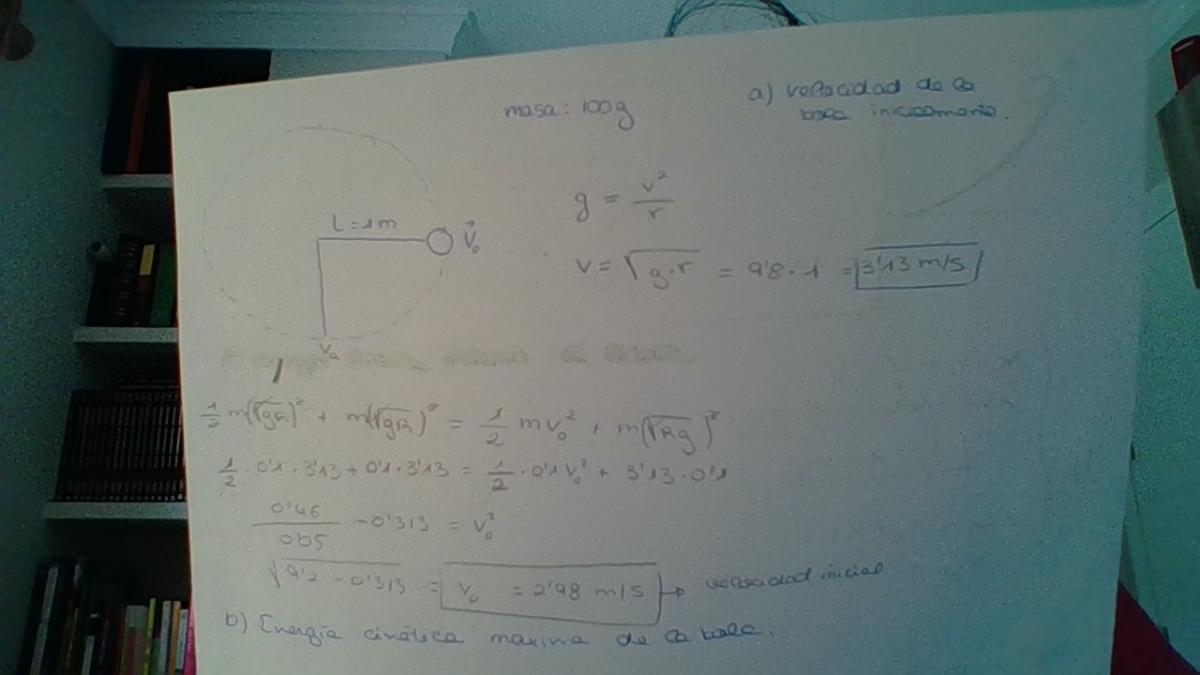 masa: 100g
a) velocidad de la
bola inicialmente.
L=1m
V⃗₀
g = v²/r
v = √g·r = 9'8·1 = 3'13 m/s
Va
½ m(√gR)² + m(√gR)² = ½ mv₀² + m(√Rg)²
½ · 0'1 · 3'13 + 0'1 · 3'13 = ½ · 0'1 V₀² + 3'13 · 0'1
0'46/005 - 0'313 = v₀²
√9'2 - 0'313 = v₀ = 2'98 m/s → velocidad inicial
b) Energía cinética maxima de la bola.